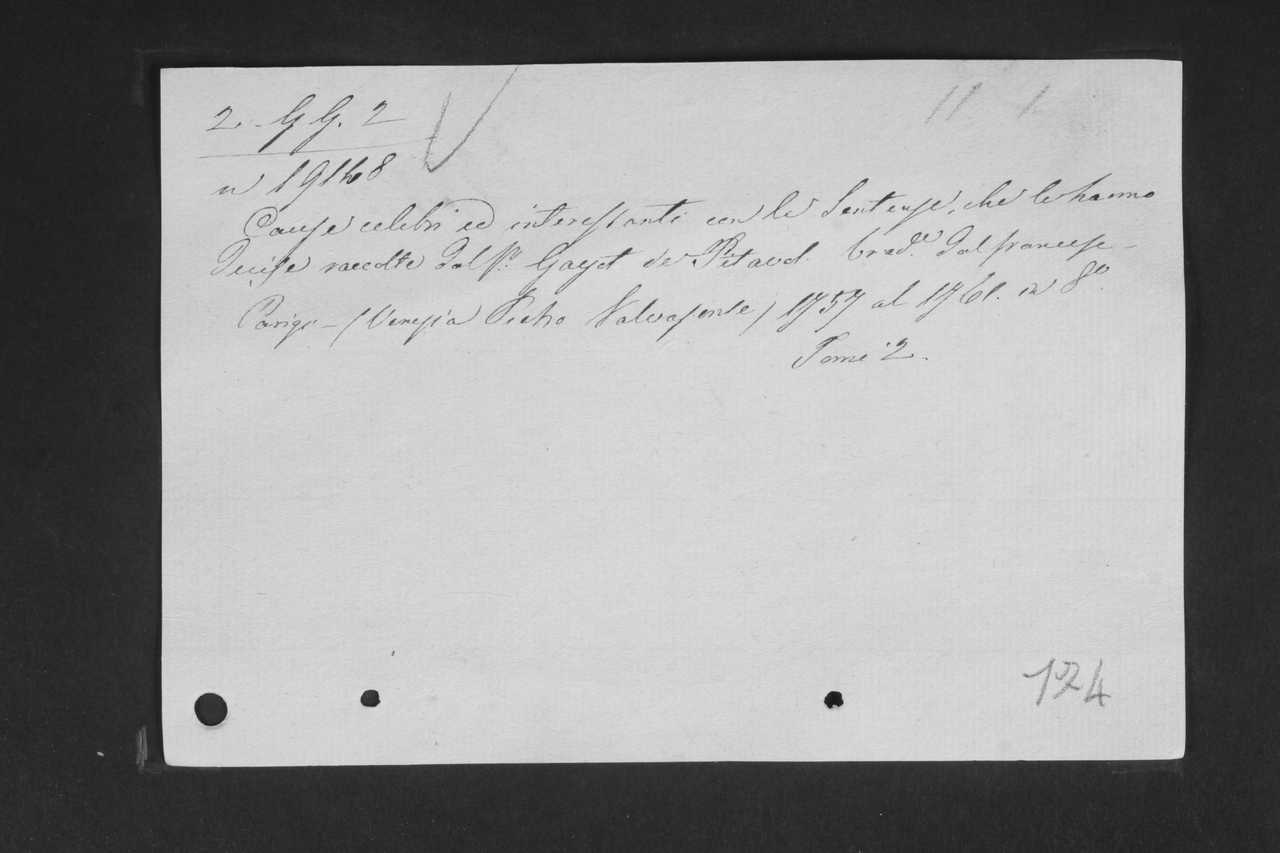 2. GG. 2
n 19148
Cause celebri ed interessanti con le Sentenze, che le hanno
Decise raccolte dal Sr. Gayot de Pitaval trade. dal francese -
Parigi - (Venezia Pietro Valvasense) 1757 al 1761. in 8o.
Tomi 2.
124